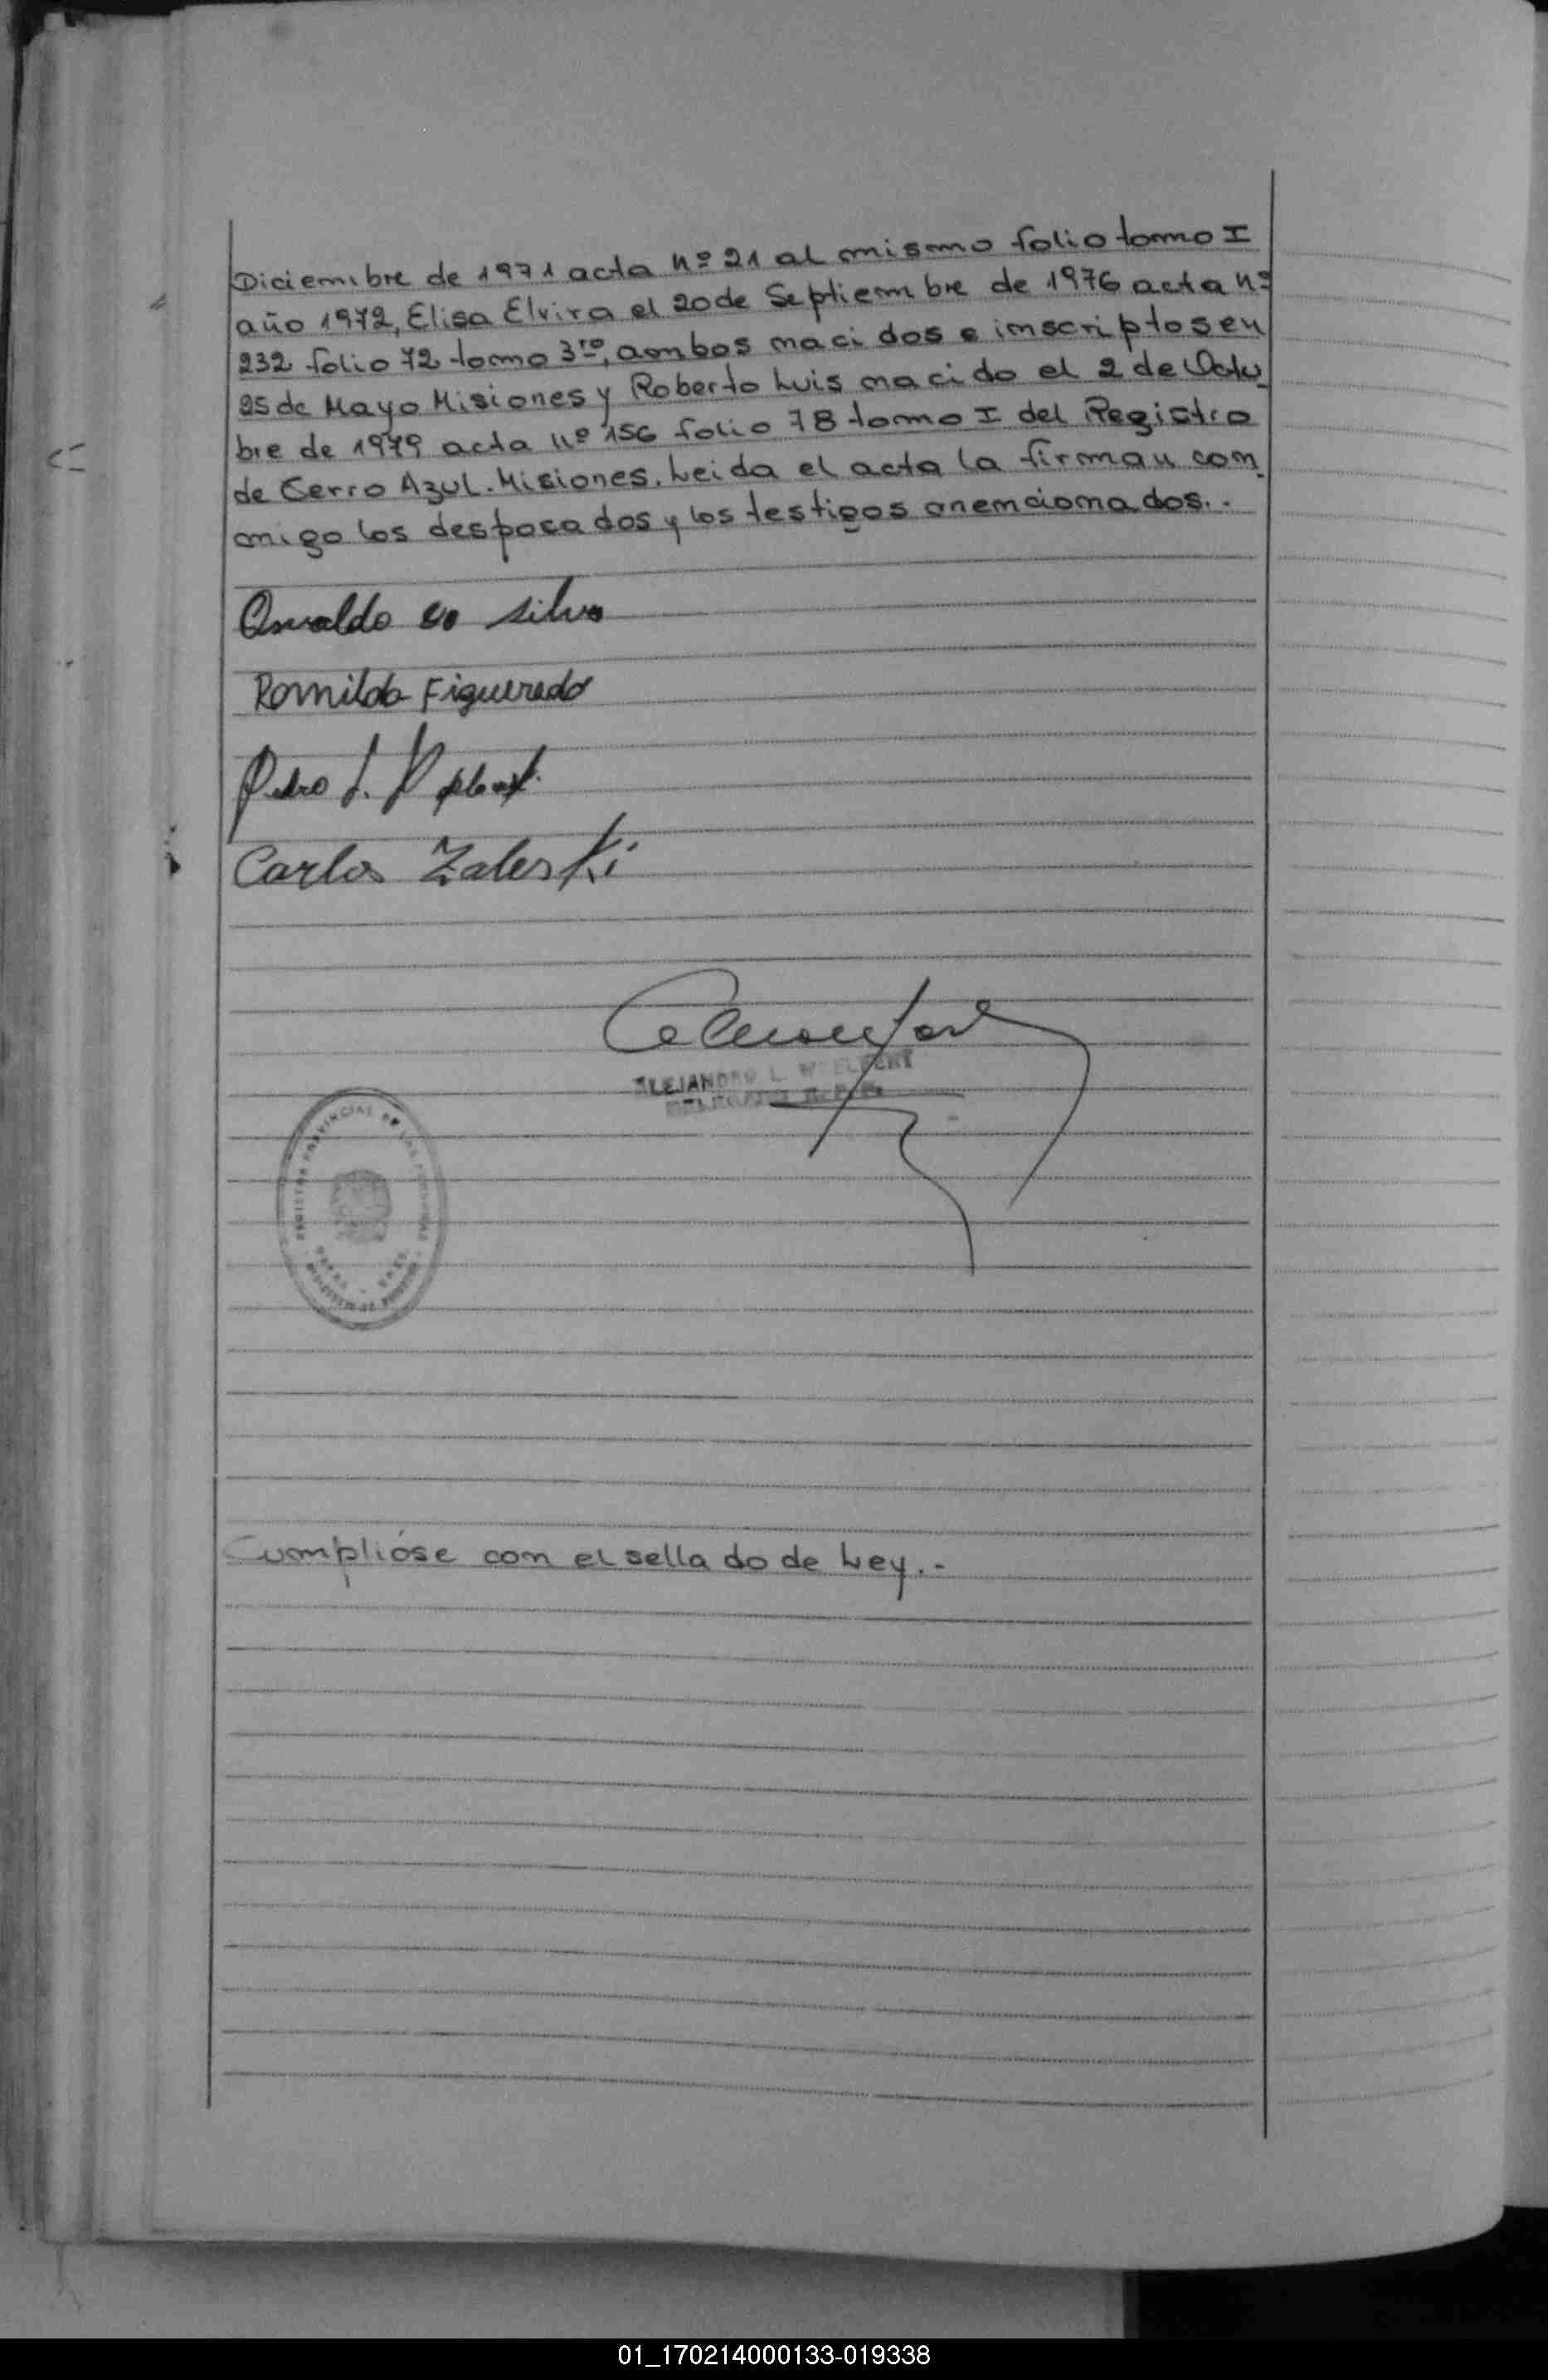 Diciembre de 1971 acta Nº 21 al mismo folio tomo I
año 1972, Elisa Elvira el 20 de Septiembre de 1976 acta Nº
232 folio 72 tomo 3ro, ambos nacidos e inscriptos en
25 de Mayo Misiones y Roberto Luis nacido el 2 de Octu
bre de 1979 acta Nº 156 folio 78 tomo I del Registro
de Cerro Azul. Misiones. Leida el acta la firman con
migo los desposados y los testigos anemcionados..-
Osvaldo Da Silva
Romilda Figueredo
Pedro J.
Carlos Zaleski
ALEJANDRO L.
REGISTRO PROVINCIAL DE LAS PERSONAS
Cumplióse con el sellado de Ley.-
01_170214000133-019338